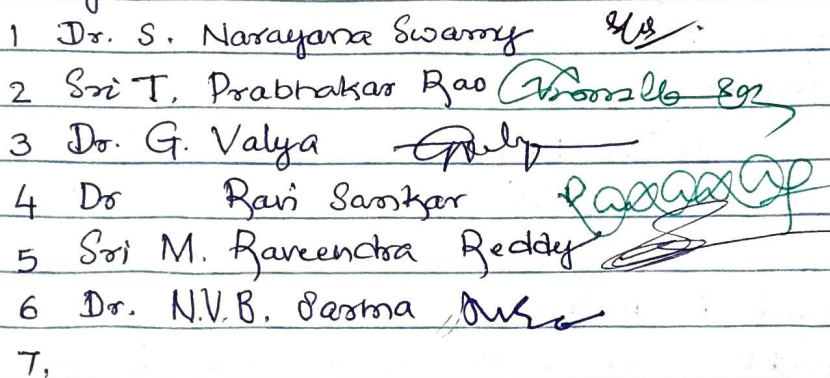 1 Dr. S. Narayana Swamy
2 Sri T. Prabhakar Rao
3 Dr. G. Valya
4 Dr Ravi Sankar
5 Sri M. Raveendra Reddy
6 Dr. N.V.B. Sarma
7,